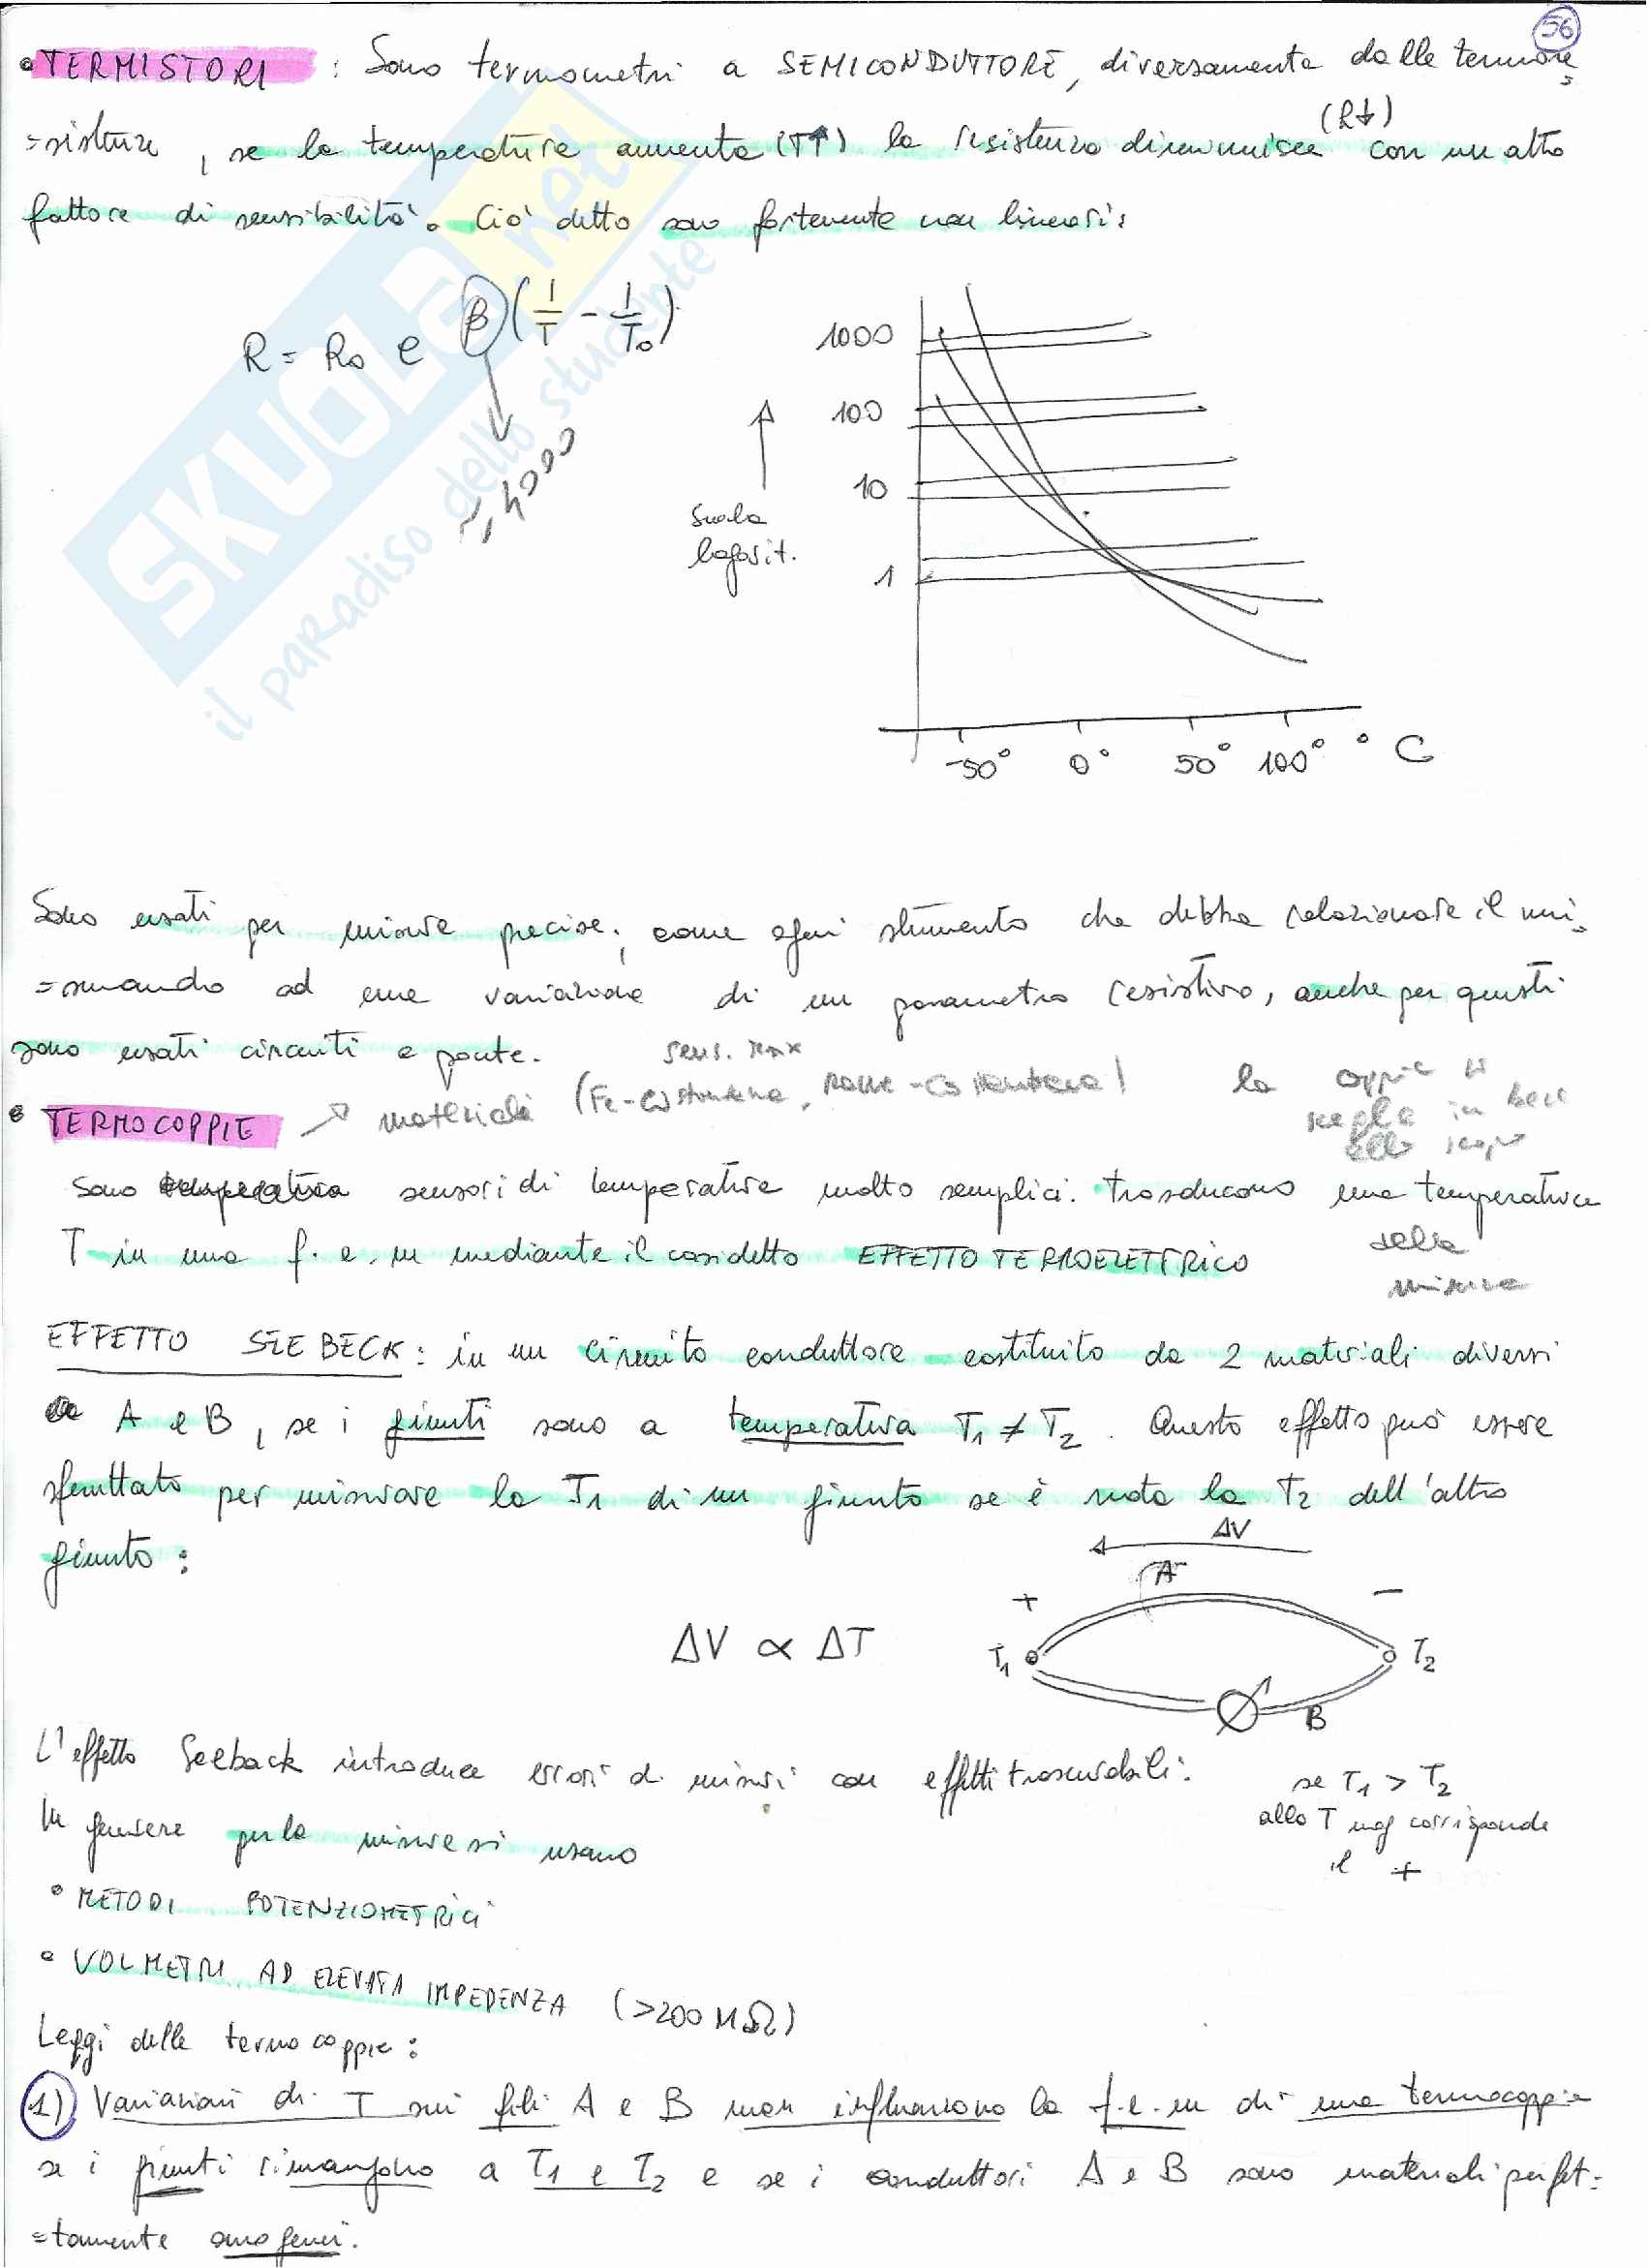 56
• TERMISTORI : Sono termometri a SEMICONDUTTORE, diversamente dalle termore=
=sistenze, se la temperatura aumenta (T↑) la resistenza diminuisce (R↓) con un alto
fattore di sensibilità. Ciò detto sono fortemente non lineari:
R = R0 e β(1/T - 1/T0)
≈ 4000
1000
100
10
1
Scala
logarit.
-50° 0° 50° 100° °C
Sono usati per misure precise; come ogni strumento che debba relazionare il mi=
=surando ad una variazione di un parametro resistivo, anche per questi
sono usati circuiti a ponte.
sens. max
• TERMOCOPPIE → materiali (Fe-Costantana, Rame-Costantana) la coppia si
sceglie in base
allo scopo
della
misura
Sono sensori di temperatura molto semplici. trasducono una temperatura
T in una f.e.m mediante il cosidetto EFFETTO TERMOELETTRICO
EFFETTO SIEBECK: in un circuito conduttore costituito da 2 materiali diversi
A e B, se i giunti sono a temperatura T1 ≠ T2. Questo effetto può essere
sfruttato per misurare la T1 di un giunto se è nota la T2 dell'altro
giunto:
ΔV ∝ ΔT
ΔV
A
+ -
T1 T2
B
se T1 > T2
alla T mag corrisponde
il +
L'effetto Seeback introduce errori di misura con effetti trascurabili.
In genere per la misura si usano
• METODI POTENZIOMETRICI
• VOLMETRI AD ELEVATA IMPEDENZA (>200 MΩ)
Leggi delle termocoppie:
1) Variazioni di T sui fili A e B non influenzano la f.e.m di una termocoppia
se i giunti rimangono a T1 e T2 e se i conduttori A e B sono materiali perfet=
=tamente omogenei.
SKUOLA.net
il paradiso dello studente